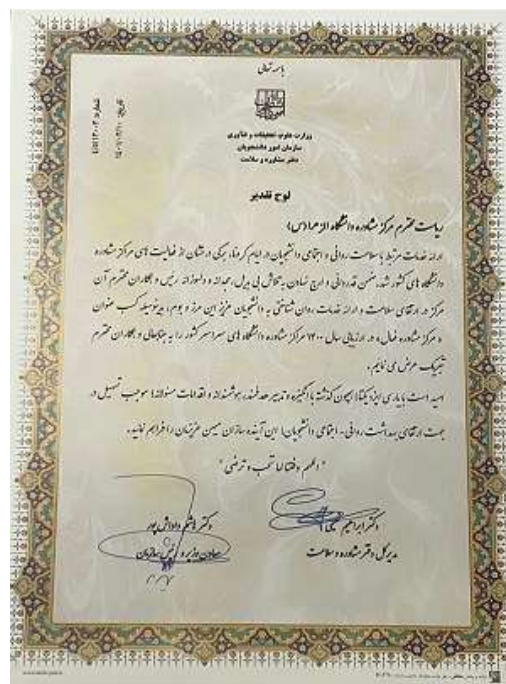 باسمه تعالی
وزارت علوم، تحقیقات و فناوری
سازمان امور دانشجویان
دفتر مشاوره و سلامت
لوح تقدیر
ریاست محترم مرکز مشاوره دانشگاه الزهرا(س)
ارائه خدمات مرتبط با سلامت روانی و اجتماعی دانشجویان در ایام کرونا، برگی درخشان از فعالیت های مراکز مشاوره
دانشگاه های کشور شد. ضمن قدردانی و ارج نهادن به تلاش بی بدیل، مجدانه و دلسوزانه رئیس و همکاران محترم آن
مرکز در ارتقای سلامت و ارائه خدمات روان شناختی به دانشجویان عزیز این مرز و بوم، بدینوسیله کسب عنوان
« مرکز مشاوره فعال » در ارزیابی سال ۱۴۰۰ مراکز مشاوره دانشگاه های سراسر کشور را به جنابعالی و همکاران محترم
تبریک عرض می نمایم.
امید است با یاری ایزد یکتا همچون گذشته با انگیزه و تدبیر هدفمند، هوشمندانه و اقدامات مسئولانه موجب تسهیل در
جهت ارتقای بهداشت روانی - اجتماعی دانشجویان این آینده سازان میهن عزیزمان را فراهم نمایید.
"اللهم وفقنا لما تحب و ترضی"
دکتر ابراهیم
مدیرکل دفتر مشاوره و سلامت
دکتر هاشم داداش پور
معاون وزیر و رئیس سازمان